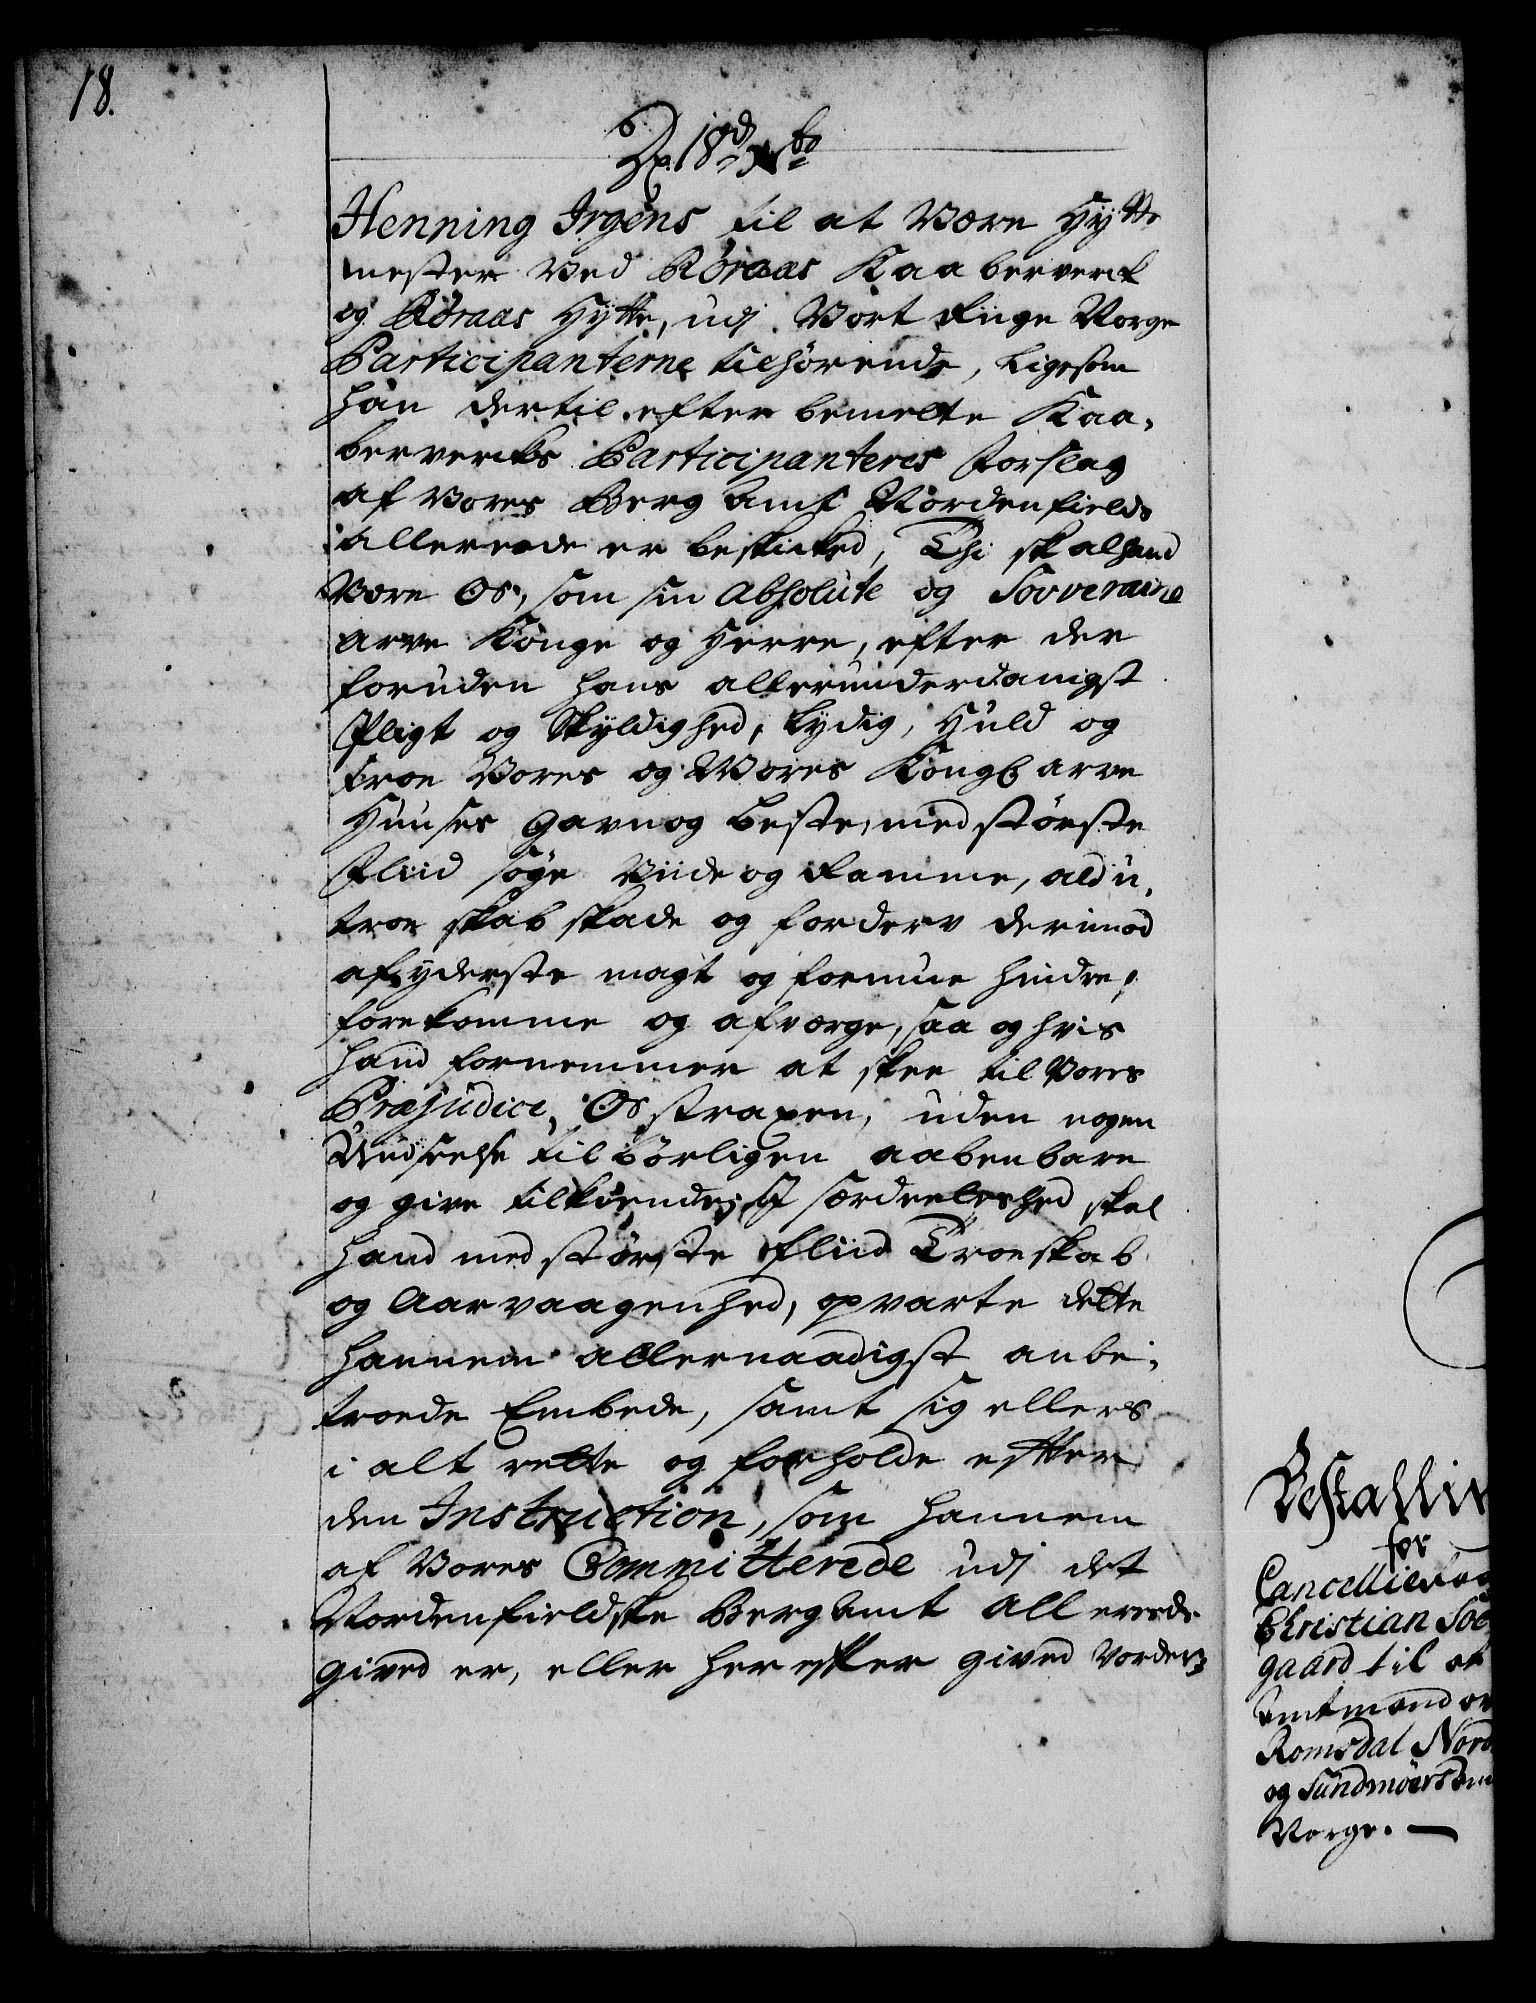 18.
18d xbo
Henning Irgens til at Være Hytte
mester Ved Røraas Kaaberverck
og Røraas Hytte, udj Vort Riige Norge
Participanterne tilhørende, ligesom
han dertil efter bemelte Kaa-
bervercks Participanteres Forslag
af Vores Berg Amt Nordenfields
allereede er beskicked, Thi skal hand
Være Os, som sin Absolute og Souveraine
arve Konge og Herre, efter der
foruden hans allerunderdanigst
Pligt og Skyldighed, lydig, Huld og
troe Vores og Vores Kongl arve
Huuses Gavn og beste, med største
Fliid søge Viide og Ramme, ald u-
troe skab skade og forderv derimod
af yderste magt og formue hindre,
forekomme og afværge, saa og hvis
hand fornemmer at skee til Vores
Præjudice, Os straxen, uden nogen
Undseelse tilbørligen aabenbare
og give tilkiende; I særdeeleshed skal
hand med største Fliid Troeskab
og Aarvaagenhed, opvarte dette
hannem allernaadigst anbe-
troede Embede, samt sig ellers
i alt rette og forholde efter
den Instruction, som hannem
af Vores Committerede udj det
Nordenfieldske Bergamt allereede
gived er, eller herefter gived vorder,
Bestallin
for
Cancellieraa
Christian Sol
gaard til at
Amtmand ov
Romsdal Nord
og Sundmøers Am
Norge. —